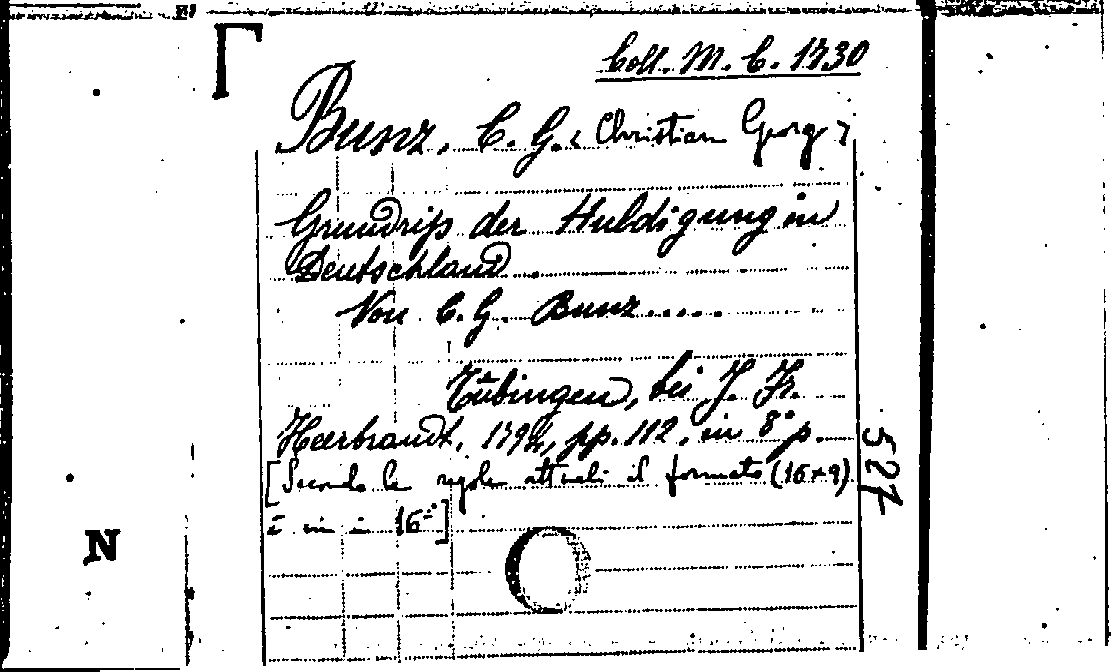 Coll. M. C. 1730
Bunz, C. G. < Christian Georg >
Grundriß der Huldigung in
Deutschland.
Von C. G. Bunz.....
Tübingen, bei J. Fr.
Heerbrandt, 1794, pp. 112, in 8° p.
[Secondo le regole attuali il formato (16×9)
è in 16°]
527
N